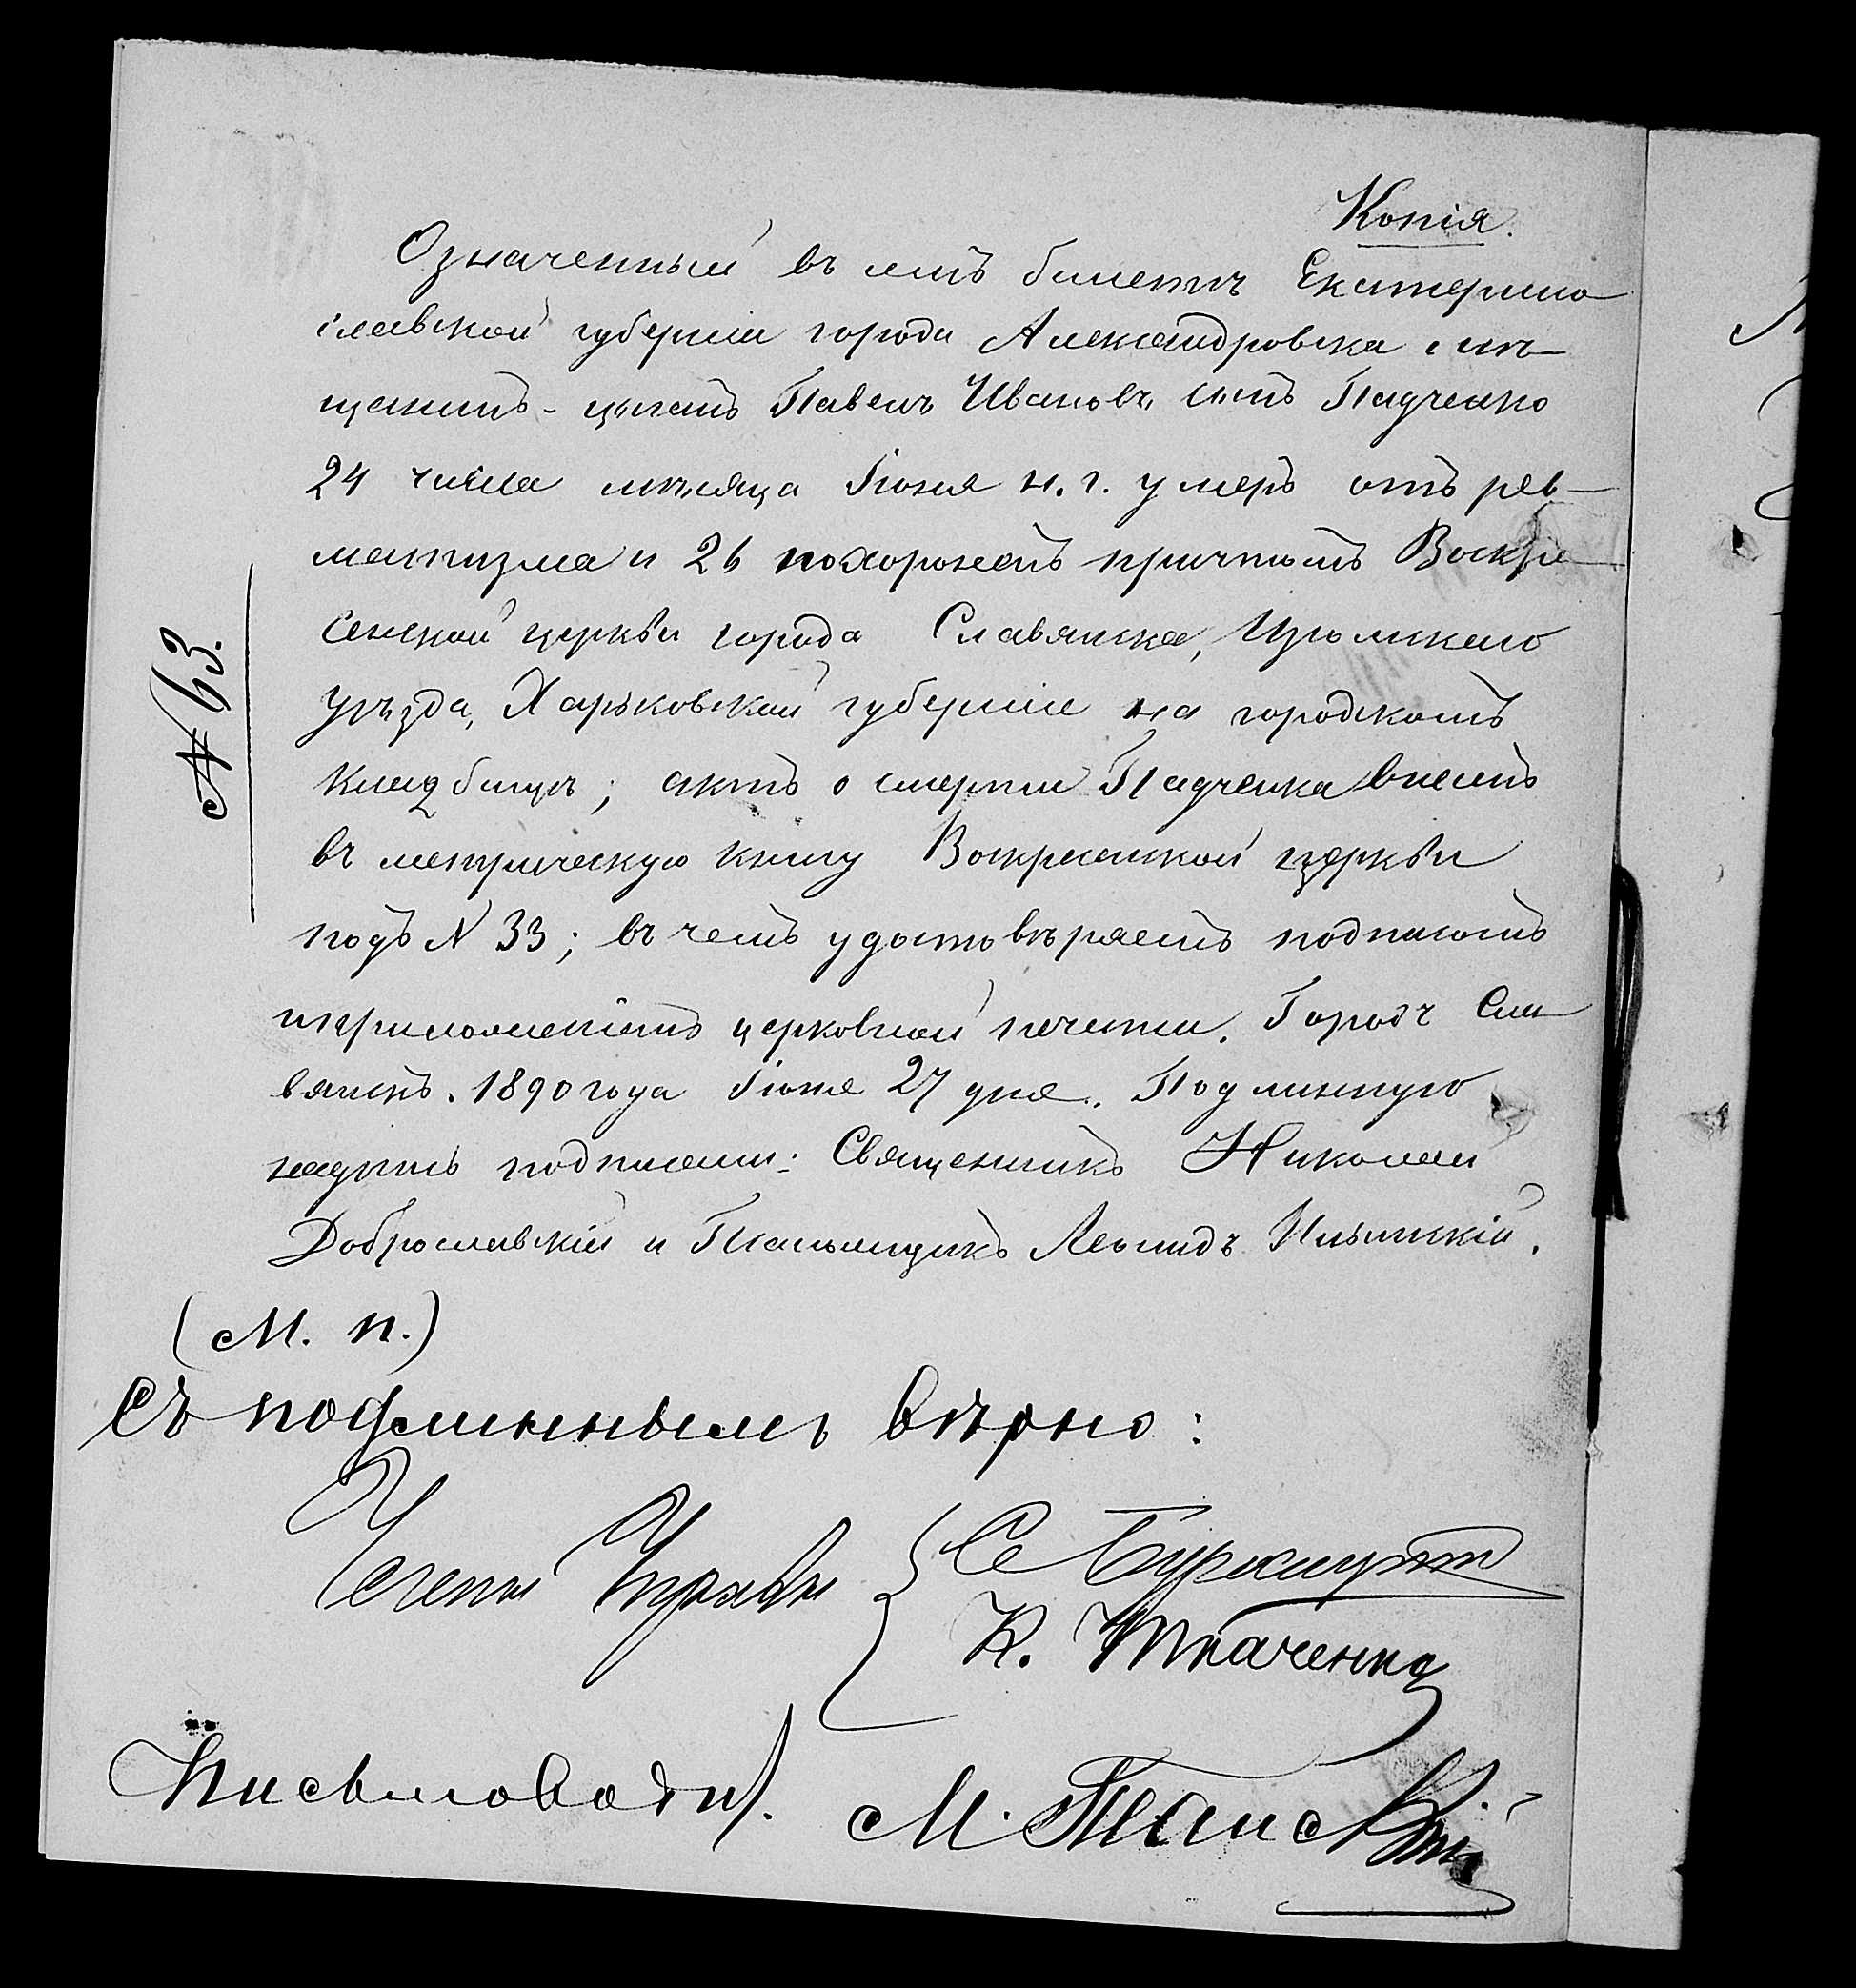 Копія.
Означенный въ семъ билетѣ Екатерино
славской губерніи города Александровска мѣ-
щанинъ-цыганъ Павелъ Ивановъ сынъ Падченко
24 числа мѣсяца Іюня н. г. умеръ отъ рев-
матизма и 26 похороненъ причтомъ Воскре
сенской церкви города Славянска, Изюмскаго
уѣзда, Харьковской губерніи на городскомъ
кладбищѣ; актъ о смерти Падченка внесенъ
въ метрическую книгу Воскресенской церкви
подъ N 33; въ чемъ удостовѣряемъ подписомъ
и приложеніемъ церковной печати. Городъ Сла
вянскъ. 1890 года Іюня 27 дня. Подлинную
надпись подписали: Священникъ Николай
Доброславскій и Псаломщикъ Леонидъ Ильинскій.
№ 63.
(М. п.)
Съ подлиннымъ вѣрно:
Члены Управы
К. Ткаченко
Письмовод.
М.